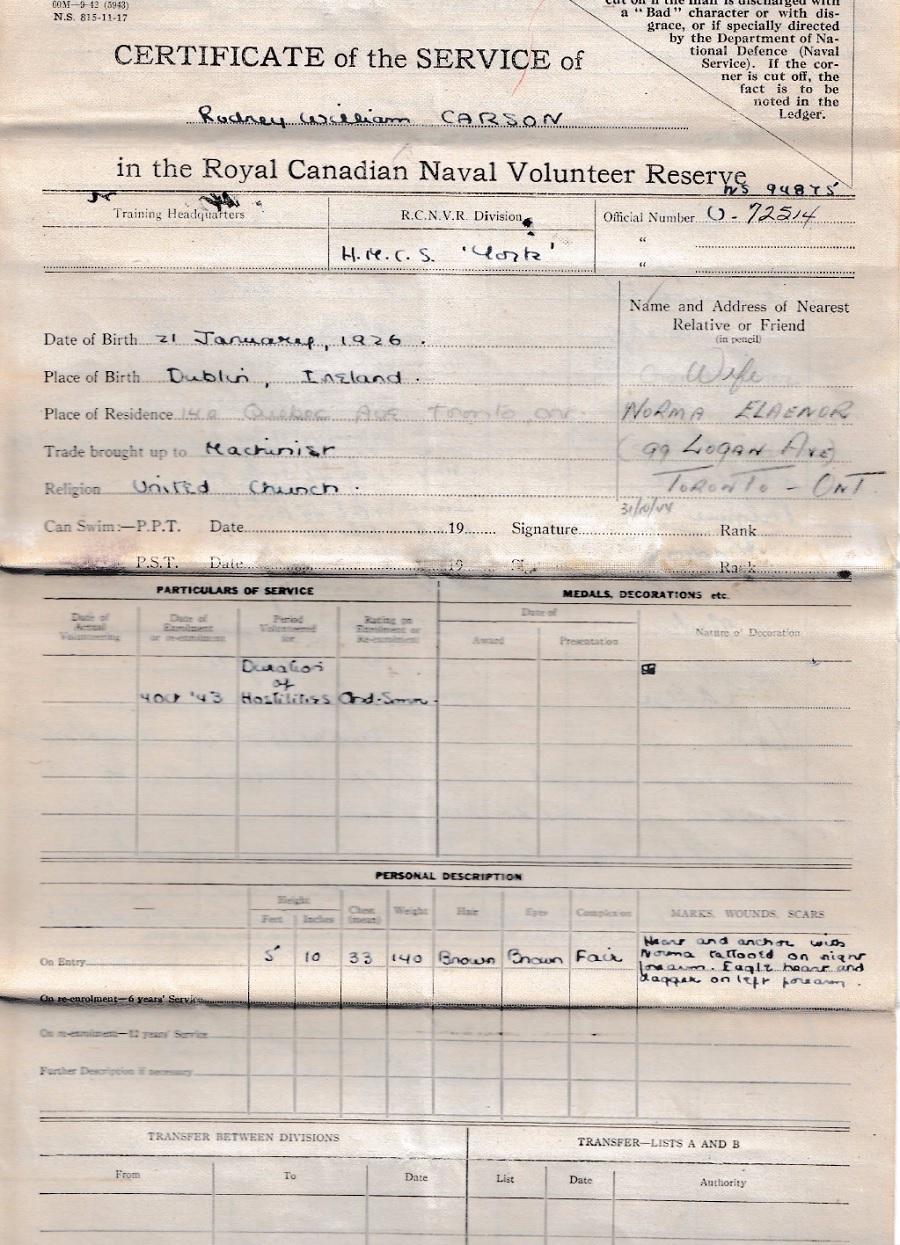 60M—9-42 (5943)
N.S. 815-11-17
cut off if the man is discharged with
a "Bad" character or with dis-
grace, or if specially directed
by the Department of Na-
tional Defence (Naval
Service). If the cor-
ner is cut off, the
fact is to be
noted in the
Ledger.
CERTIFICATE of the SERVICE of
Rodney William CARSON
in the Royal Canadian Naval Volunteer Reserve
NS 94875
Training Headquarters
R.C.N.V.R. Division
H.M.C.S. 'York'
Official Number V-72514
"
"
Name and Address of Nearest
Relative or Friend
(in pencil)
Date of Birth 21 January, 1926.
Place of Birth Dublin, Ireland.
Wife
Place of Residence 140 Quebec Ave Toronto Ont.
NORMA ELAENOR
Trade brought up to Machinist
(99 LOGAN AVE)
Religion United Church.
TORONTO - ONT.
31/10/44
Can Swim:—P.P.T. Date 19 Signature Rank
P.S.T. Date 19 Rank
PARTICULARS OF SERVICE
MEDALS, DECORATIONS etc.
Date of Actual Volunteering
Date of Enrolment or re-enrolment
Period Volunteered for
Rating on Enrolment or Re-enrolment
Date of
Award
Presentation
Nature of Decoration
Duration
of
4 Oct '43 Hostilities Ord. Smn.
PERSONAL DESCRIPTION
Height
Feet Inches
Chest (mean)
Weight
Hair
Eyes
Complexion
MARKS, WOUNDS, SCARS
On Entry 5' 10 33 140 Brown Brown Fair
Heart and anchor with
Norma tattooed on right
forearm. Eagle heart and
dagger on left forearm.
On re-enrolment—6 years' Service
On re-enrolment—12 years' Service
Further Description if necessary
TRANSFER BETWEEN DIVISIONS
TRANSFER—LISTS A AND B
From To Date List Date Authority